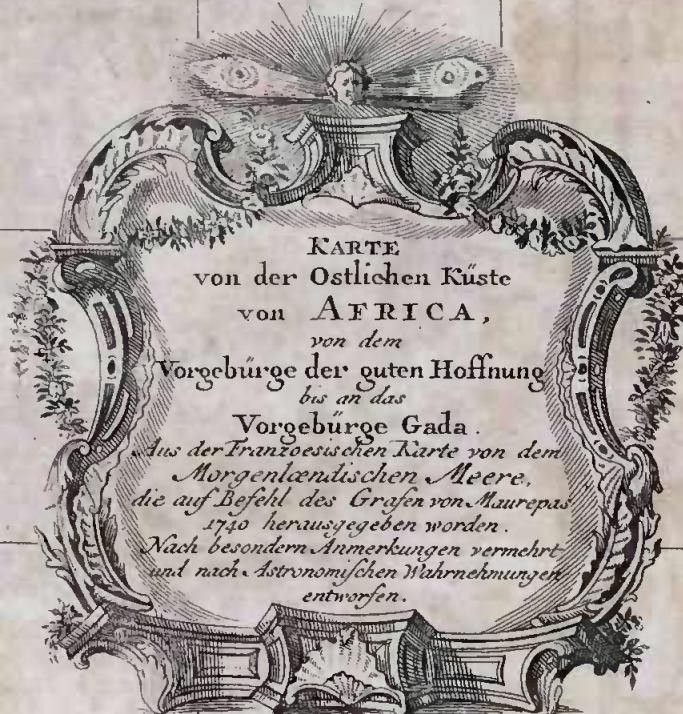 KARTE
von der Ostlichen Küste
von AFRICA,
von dem
Vorgebürge der guten Hoffnung
bis an das
Vorgebürge Gada.
Aus der Franzoesischen Karte von dem
Morgenlændischen Meere,
die auf Befehl des Grafen von Maurepas
1740 herausgegeben worden.
Nach besondern Anmerkungen vermehrt
und nach Astronomischen Wahrnehmungen
entworfen.